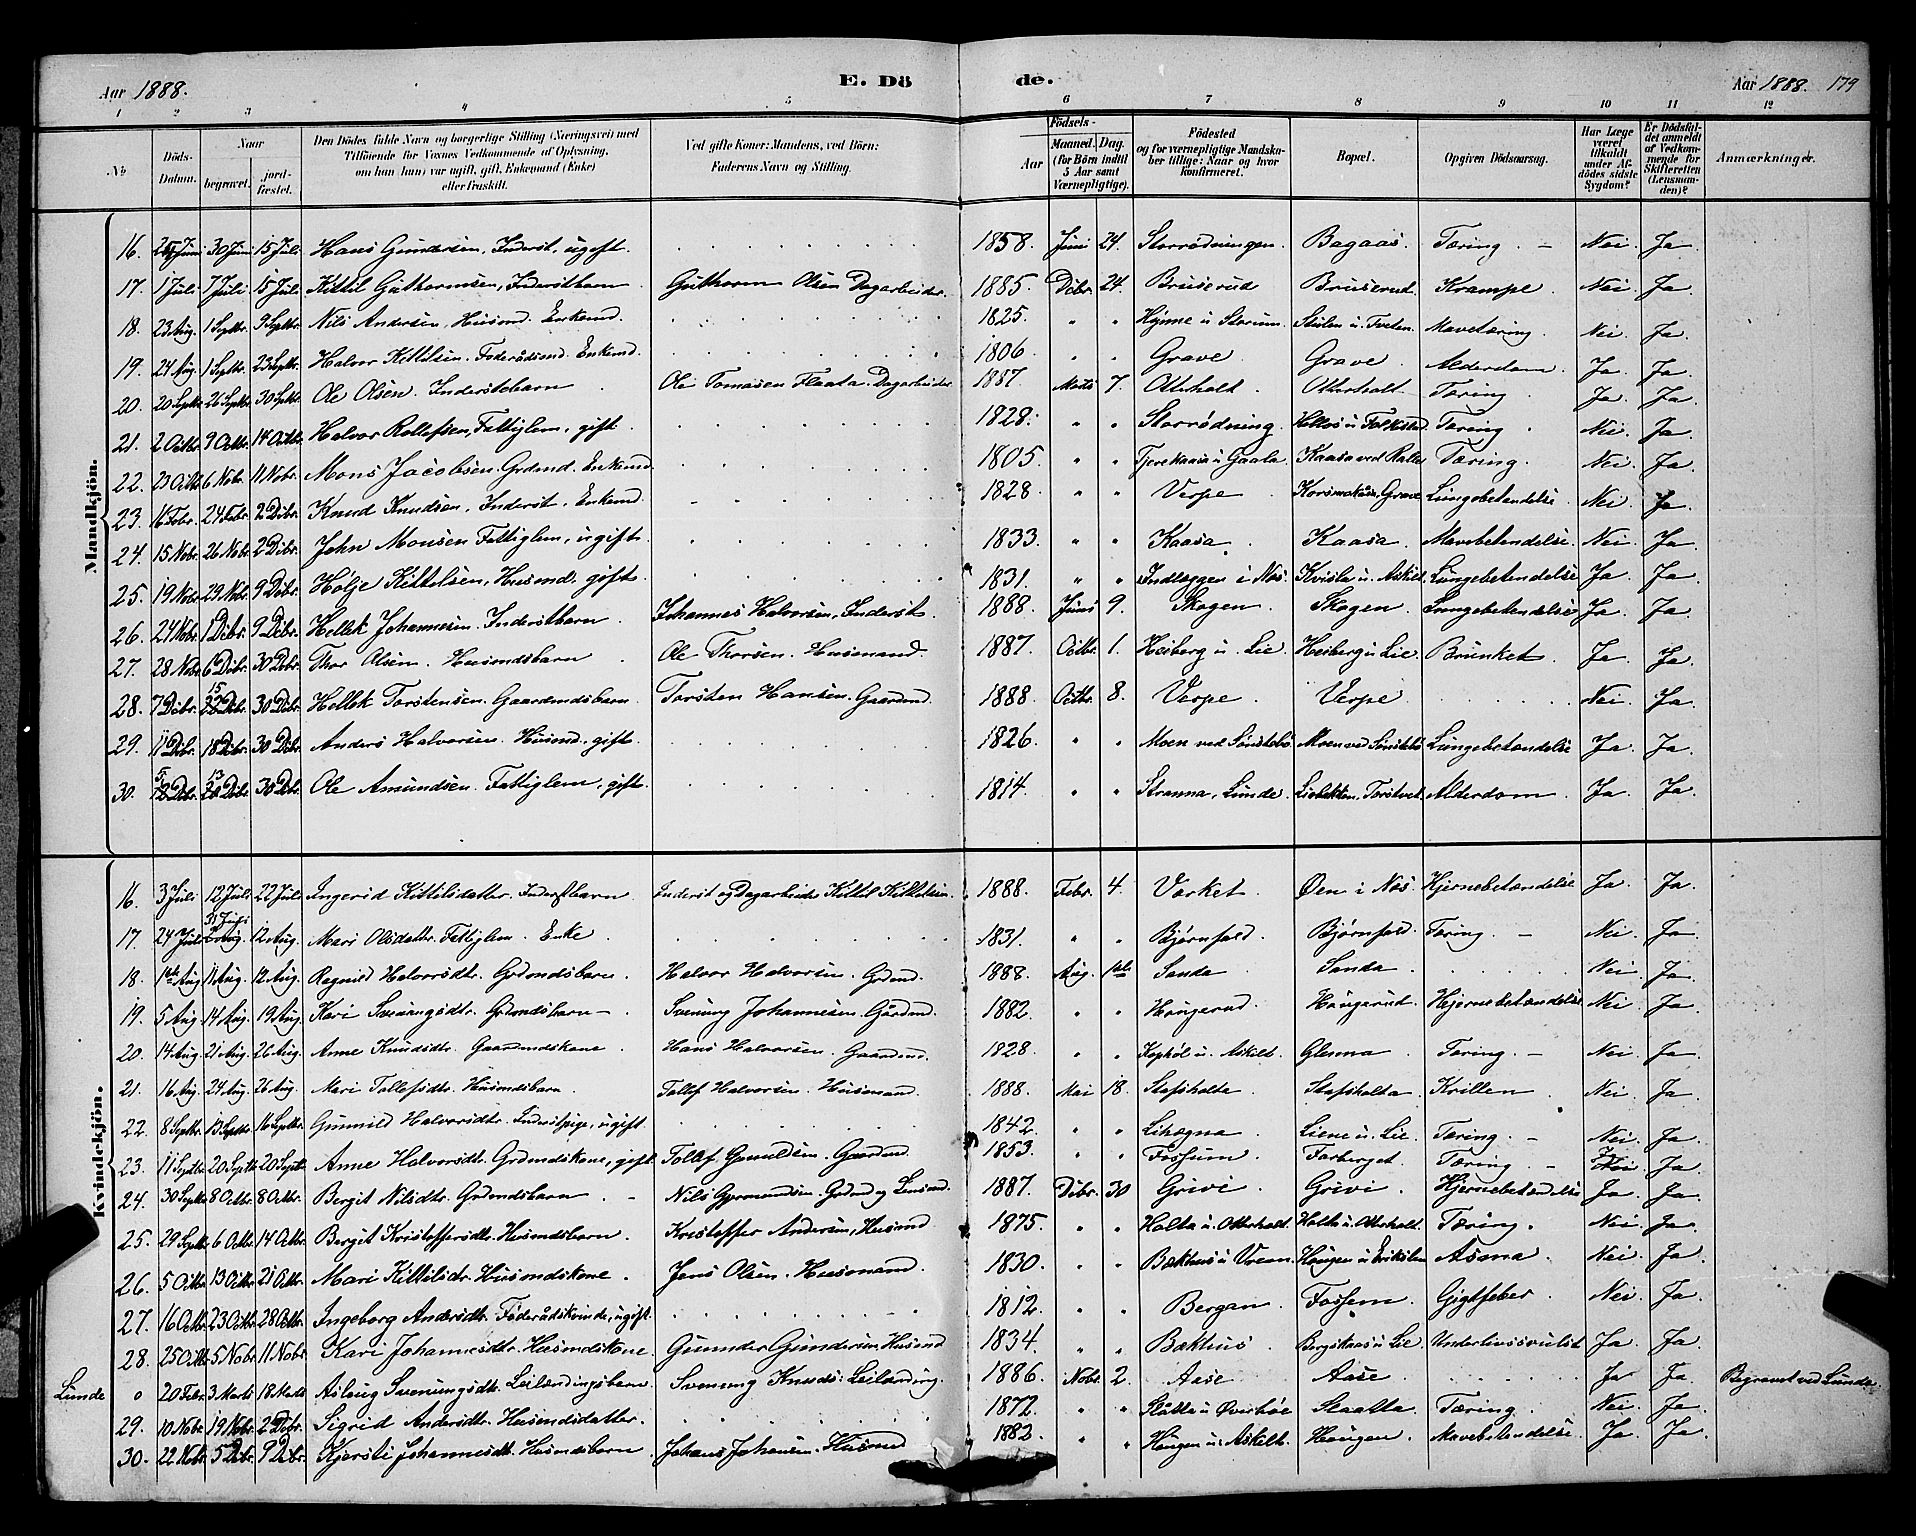 Aar 1888. E. Dö de. Aar 1888. 179
1 2 3 4 5 6 7 8 9 10 11 12
No Döds-Datum. Naar begravet. jordfæstet. Den Dödes fulde Navn og borgerlige Stilling (Næringsvei) med Tilföiende for Voxnes Vedkommende af Oplysning, om han (hun) var ugift, gift, Enkemand (Enke) eller fraskilt. Ved gifte Koner: Mandens, ved Börn: Faderens Navn og Stilling. Födsels- Aar Maaned. Dag. (for Börn indtil 5 Aar samt Værnepligtige). Födested og for værnepligtige Mandskaber tillige: Naar og hvor konfirmeret. Bopæl. Opgiven Dödsaarsag. Har Læge været tilkaldt under Afdödes sidste Sygdom? Er Dödsfaldet anmeldt af Vedkommende for Skifteretten (Lensmanden)? Anmærkninger.
Mandkjön.
16. Juni 30 Juni 15 Juli Hans Gundersen, Inderst, ugift 1858. Juni 24. Storrødningen. Bagaas. Tæring. – Nei. Ja.
17. 1 Juli 7 Juli 15 Juli Kittil Guthormsen, Inderstbarn Guthorm Olsen Dagarbeider. 1885. Dcbr. 24. Bruserud Bruserud. Krampe. Nei. Ja.
18. 23 Aug. 1 Septbr. 9 Septbr. Nils Andersen, Husmd. Enkemd. 1825. " " Hynne u. Storum. Stulen u. Tveten. Mavetæring. Nei. Ja.
19. 24 Aug. 1 Septbr. 23 Septbr. Halvor Kittilsen. Foderådsmd. Enkemd. 1806 " " Grave. Grave. Alderdom. Ja. Ja.
20. 20 Septbr. 26 Septbr. 30 Septbr. Ole Olsen. Inderstebarn Ole Tomasen Flaata. Dagarbeider 1887. Marts 7. Otterholt. Otterholt. Tæring. Ja. Ja.
21. 2 Octbr. 9 Octbr. 14 Octbr. Halvor Rollefsen, Fattiglem, gift. 1828. " " Storrødning. Tæring. Nei. Ja.
22. 23 Octbr. 6 Nobr. 11 Nobr. Mons Jacobsen. Grdmd. Enkemd. 1805. " " Kaasa ved Tæring. Nei. Ja.
23. 16 Febr. 24 Febr. 2 Dcbr. Knud Knudsen, Inderst, Enkemd. 1828 " " Verpe. Grave Lungebetendelse. Nei. Ja.
24. 15 Nobr. 26 Nobr. 2 Dcbr. John Monsen Fattiglem, ugift. 1833. " " Kaasa. Kaasa. Mavebetendelse. Nei. Ja.
25. 19 Nobr. 29 Nobr. 9 Dcbr. Hølje Kittelsen, Husmd. gift. 1831. " " Indlæggen i Nes. Kvisla u. Askilt. Lungebetendelse Ja. Ja.
26. 24 Nobr. 1 Dcbr. 9 Dcbr. Hellek Johannesen. Inderstbarn. Johannes Halvorsen, Inderst. 1888. Juni 9. Skogen. Skogen. Lungebetendelse Ja. Ja.
27. 28 Nobr. 6 Dcbr. 30 Dcbr. Thor Olsen. Husmdsbarn Ole Thorsen. Husmand. 1887. Octbr. 1. Heiberg u. Lie Heiberg u. Lie. Brunket. Ja. Ja.
28. 7 Dcbr. 15 22 Dcbr. 30 Dcbr. Hellek Torstensen. Gaardmdsbarn. Torsten Hansen. Gaardmd. 1888 Octbr. 8. Verpe. Verpe Nei. Ja.
29. 11 Dcbr. 18 Dcbr. 30 Dcbr. Anders Halvorsen. Husmd. gift. 1826. " " Moen ved Sønstebø. Moen ved Sønstebø Lungebetændelse Ja. Ja.
30. 5 12 Dcbr. 13 20 Dcbr. 30 Dcbr. Ole Amundsen. Fattiglem, gift. 1814. " " Stranna, Lunde. Torstvet. Alderdom. Ja. Ja.
Kvindekjön.
16. 3 Juli 12 Juli 22 Juli Ingerid Kittilsdatter. Inderstbarn Inderst og Dagarbeider Kittil Kittelsen. 1888. Febr. 4. Vorket. Øen i Nes. Hjernebetændelse Ja. Ja.
17. 24 Juli 31 Juli 12 Aug. Mari Olsdattr. Fattiglem. Enke 1831. " " Bjørnfald. Bjørnfald. Tæring. – Nei. Ja.
18. 1ste Aug 11 Aug. 12 Aug. Ragnild Halvorsdtr. Grdmdsbarn. Halvor Halvorsen. Grdmd. 1888. Aug. 1ste Sanda Sanda. Nei. Ja.
19. 5 Aug. 14 Aug. 19 Aug. Kari Svenungsdtr. Grdmdsbarn – Svenung Johannesen. Gårdmd. 1882. " " Haugerud. Haugerud. Hjernebetændelse Nei. Ja.
20. 14 Aug. 21 Aug. 26 Aug. Anne Knudsdtr. Gaardmdskone. Hans Halvorsen. Gaardmd. 1828. " " Kophøl u. Askilt. Glenna. Tæring. – Nei. Ja.
21. 16 Aug. 24 Aug. 26 Aug. Mari Tollefsdtr. Husmdsbarn. Tollef Halvorsen. Husmand. 1888. Mai 18. Stafsholta. Stafsholta. Krillen. Nei. Ja.
22. 8 Septbr. 13 Septbr. 16 Septbr. Gunnild Halvorsdtr. Inderstpige, ugift. 1842. " " Lihægna. Liene u. Lie. Tæring. – Nei. Ja.
23. 11 Septbr. 20 Septbr. 20 Septbr. Anne Halvorsdtr. Grdmdskone, gift. Tollef Gunuldsen. Gaardmd. 1853. " " Fossum. Farberget. Tæring. – Ja. Ja.
24. 30 Septbr. 8 Octbr. 8 Octbr. Bergit Nilsdtr. Grdmdsbarn. – Nils Gjermundsen. Grdmd og Lensmd. 1887. Dcbr. 30 Grivi. Grivi. Hjernebetændelse Ja. Ja.
25. 29 Septbr. 6 Octbr. 14 Octbr. Bergit Kristoffersdtr. Husmdsbarn. Kristoffer Andersen, Husmd 1875. " " Holta u. Otterholt. Holta u. Otterholt. Tæring. Nei. Ja.
26. 5 Octbr. 13 Octbr. 21 Octbr. Mari Kittilsdtr. Husmdskone. Jens Olsen. Husmand. 1830. " " Bakhus u. Vreim. Haugen u. Eriksten Asma. Nei. Ja.
27. 16 Octbr. 23 Octbr. 28 Octbr. Ingeborg Andersdtr. Føderådskvinde, ugift. 1812. " " Bergan. Fossem. Gigtfeber. Nei. Ja.
28. 25 Octbr. 5 Nobr. 11 Nobr. Kari Johannesdtr. Husmdskone. Gunnder Gundersen. Husmd 1834. " " Bakhus. Bergskaas u. Lie Underlivssvulst Ja. Ja.
Lunde 0 20 Febr. 3 Marts 18 Marts Aslaug Svenungsdtr. Leilændingsbarn. Svenung Knuds: Leilænding. 1886. Nobr. 2. Aase. Aase. Ja. Ja. Begravet ved Lunde.
29. 10 Nobr. 19 Nobr. 2 Dcbr. Sigrid Andersdtr. Husmdsdatter. 1872. " " Slåtta u. Øverbøe Slaatta Tæring. Nei. Ja.
30. 22 Nobr. 5 Dcbr. 9 Dcbr. Kjersti Johannesdtr. Husmdsbarn. Johans Johansen. Husmd 1883. " " Haugen u. Askilt. Haugen. Mavebetendelse. Ja. Ja.